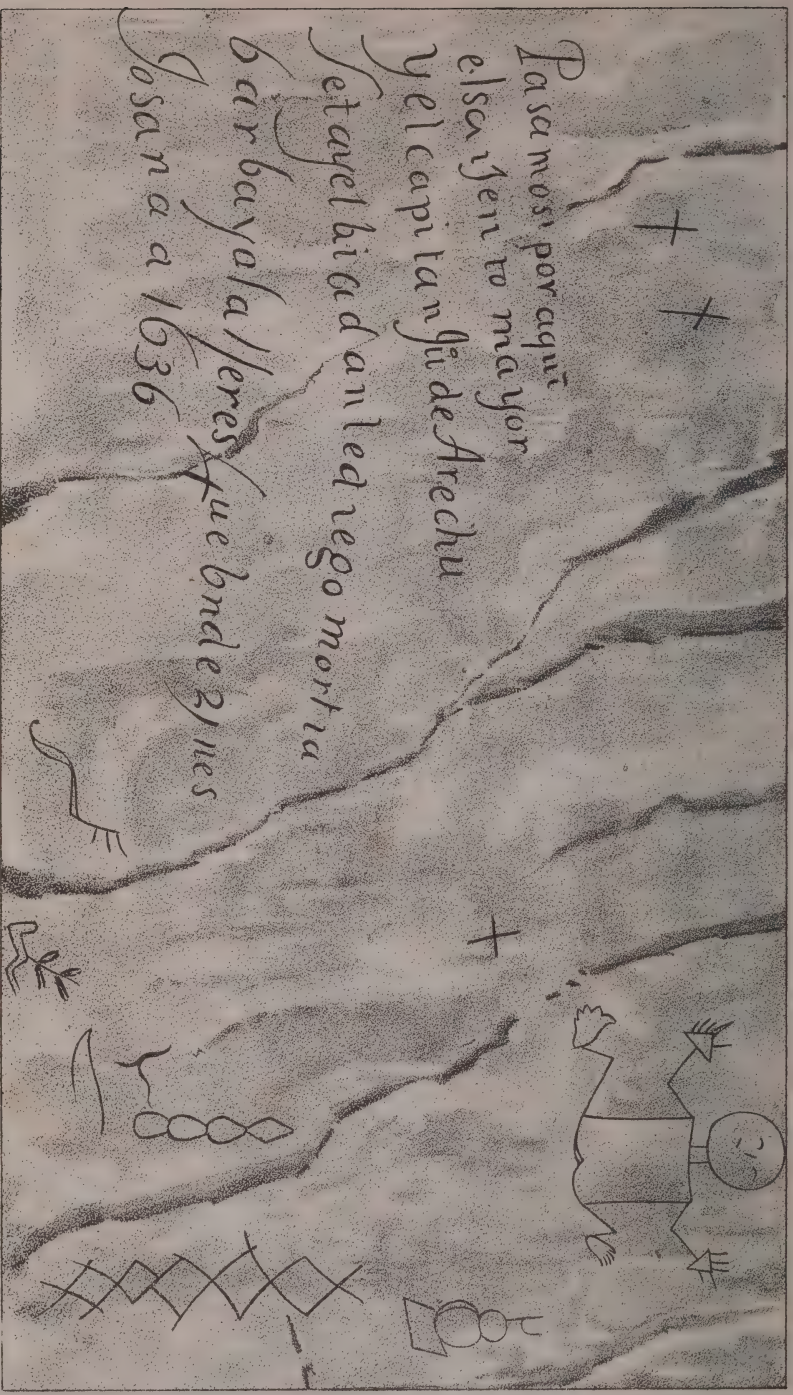 Pasamos por aquī
elsarJento mayor
yelcapitanJũ de Arechu
letayelhiad anledrego martin
barbayalalferes quebndezines
Josan a a 1636